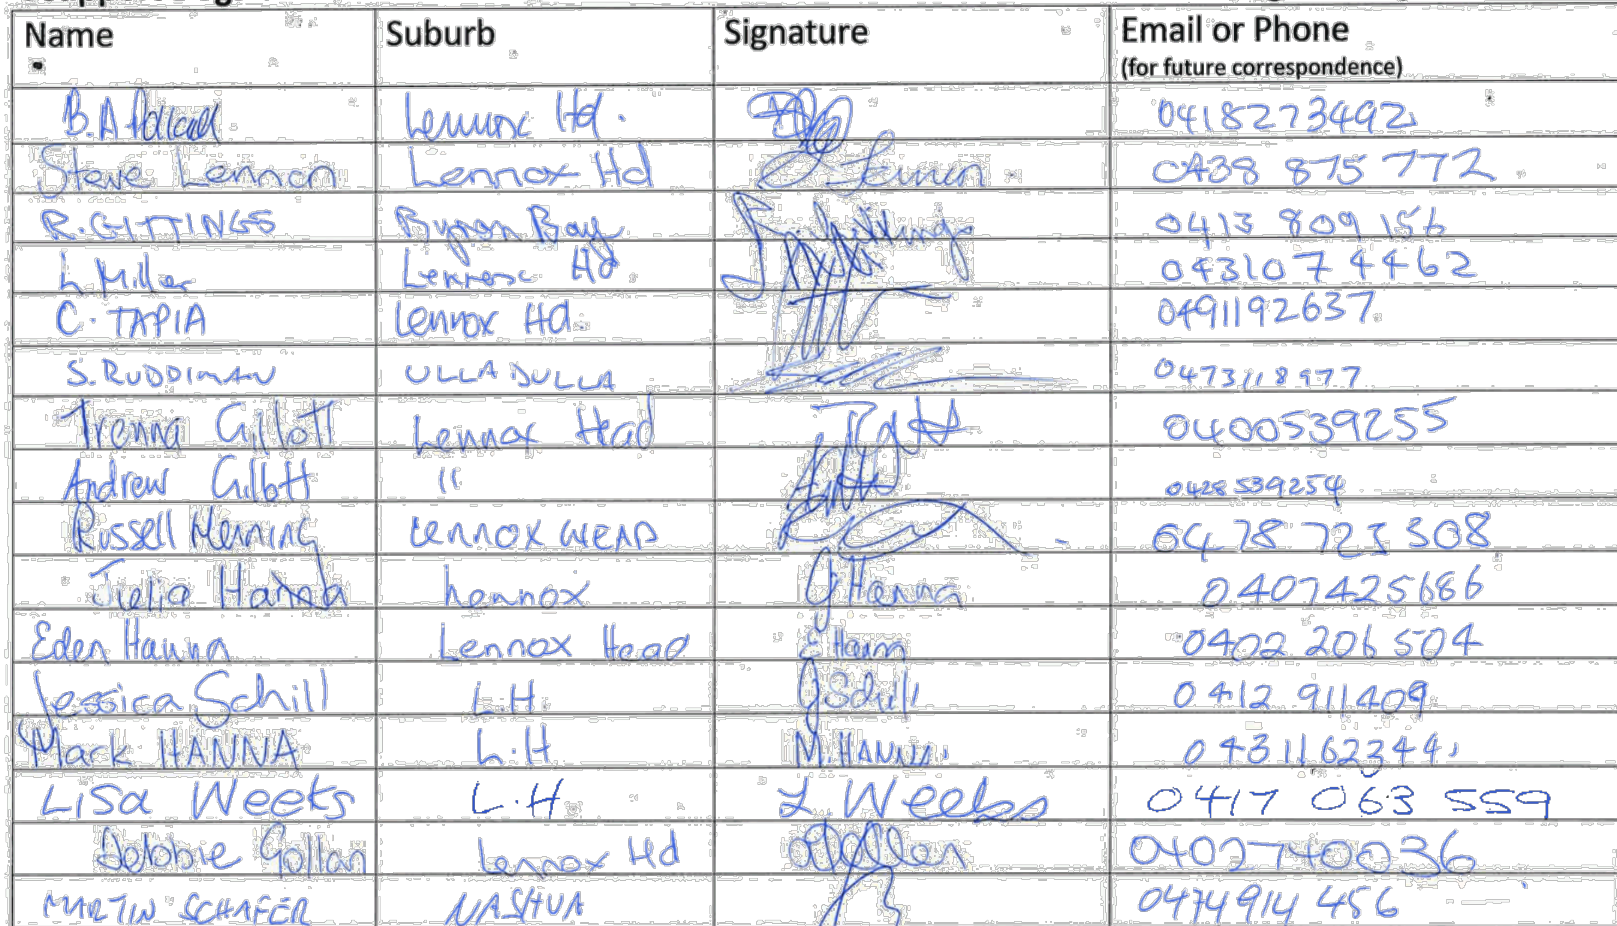 Name Suburb Signature Email or Phone
(for future correspondence)
B.A Lennox Hd. 0418273492
Steve Lennon Lennox Hd S Lennon 0438 875 772
R. GITTINGS Byron Bay Gittings 0413 809 156
L. Miller Lennox Hd 0431074462
C. TAPIA Lennox Hd. 0491192637
S. RUDDIMAN ULLADULLA 0473118977
Trenna Gillott Lennox Head 0400539255
Andrew Gillott 11 0428 539254
Russell Henning LENNOX HEAD 0478 723 308
Julie Hanna Lennox J Hanna 0407425686
Eden Hanna Lennox Head E Hanna 0402 206 504
Jessica Schill L.H J Schill 0412 911409
Mark HANNA L.H M. HANNA 0431162344
Lisa Weeks L.H L. Weeks 0417 063 559
Debbie Gollan Lennox Hd DGollan 0402740036
MARTIN SCHAFER NASHUA 0474914 456